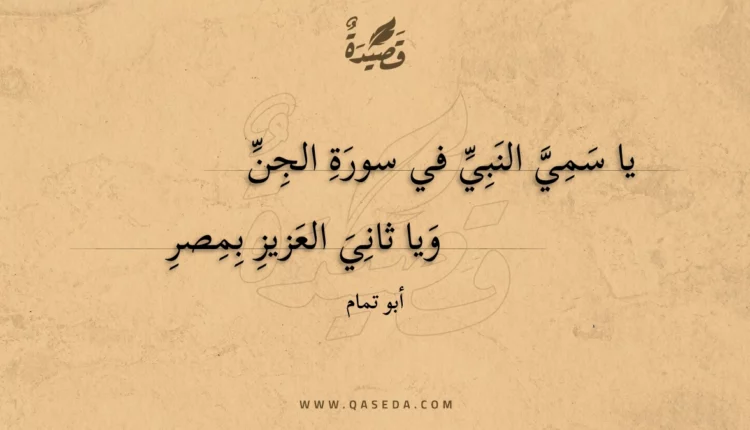 قَصِيدَةٌ
يا سَمِيَّ النَبِيِّ في سورَةِ الجِنِّ
وَيا ثانِيَ العَزيزِ بِمِصرِ
أبو تمام
WWW.QASEDA.COM